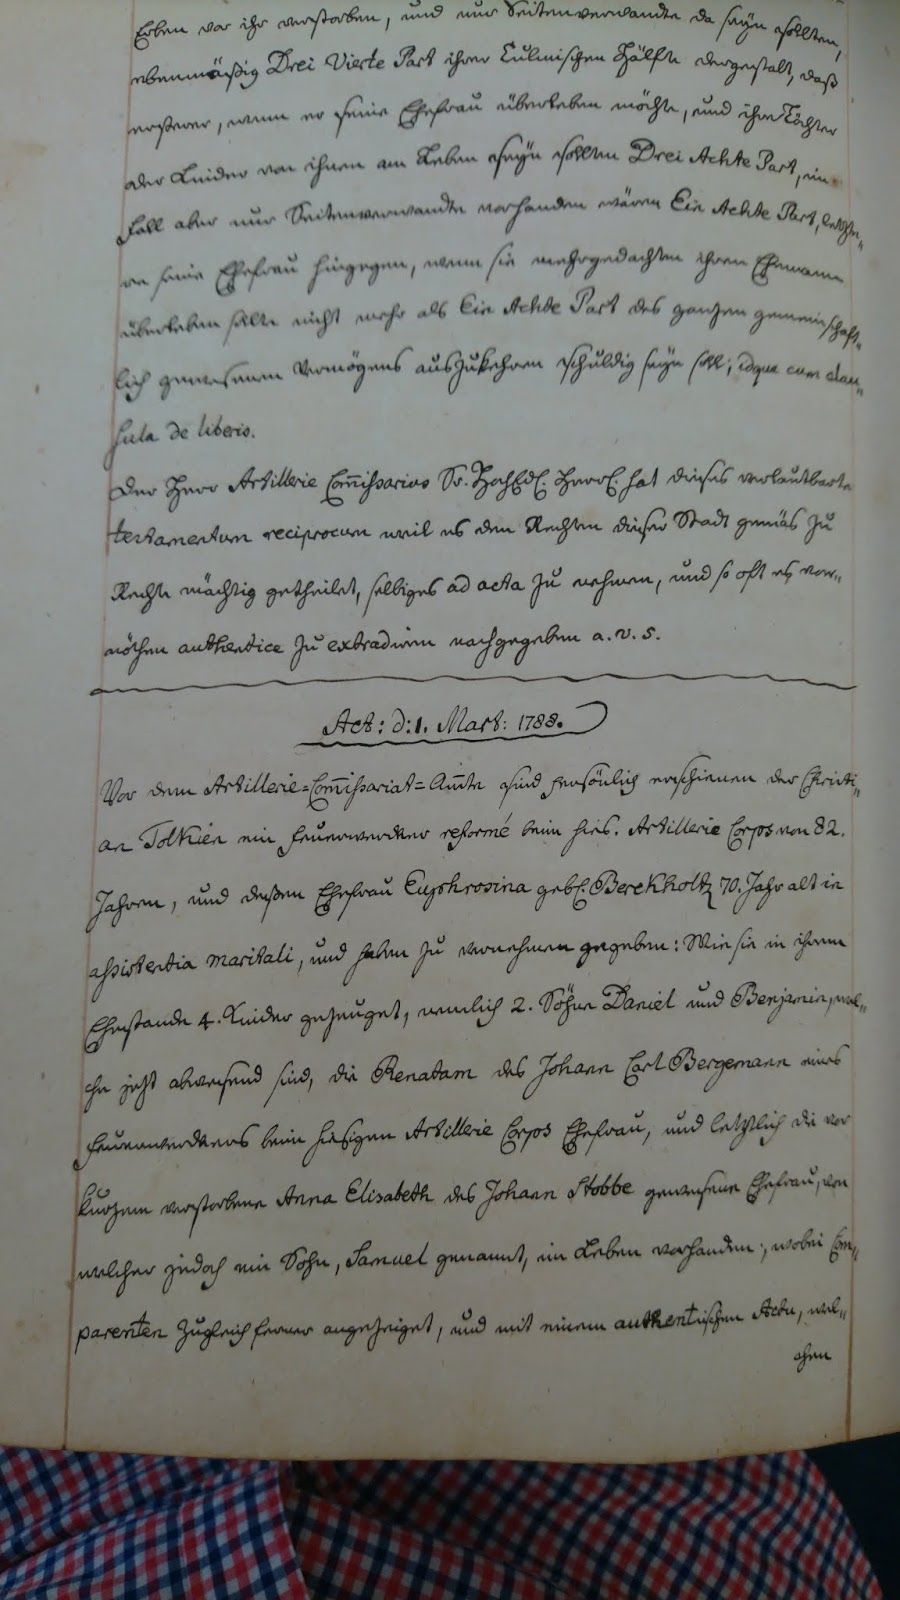 Erben vor ihr verstorben, und nur Seitenverwandte da seyn sollten,
ebenmäßig Drei Vierte Part ihrer Culmischen Hälfte dergestalt, daß
ersterer, wenn er seine Ehefrau überleben möchte, und ihre Töchter
oder Kinder von ihnen am Leben seyn sollten Drei Achte Part, im
Fall aber nur Seitenverwandte vorhanden wären Ein Achte Part, letzte-
re seine Ehefrau hingegen, wenn sie mehrgedachten ihren Ehemann
überleben sollte nicht mehr als Ein Achte Part des ganzen gemeinschaft-
lich gewesenen Vermögens auszukehren schuldig seyn soll; idque cum clau-
sula de liberis.
Der Herr Artillerie Com̄issarius Sr. HochEdl. Herrl. hat dieses verlautbarte
testamentum reciprocum weil es den Rechten dieser Stadt gemäs zu
Rechte mächtig getheilet, selbiges ad acta zu nehmen, und so oft es von-
nöthen authentice zu extradiren nachgegeben a. v. s.
Act: d: 1. Mart: 1788.
Vor dem Artillerie=Com̄issariat=Am̄te sind persönlich erschienen der Christi-
an Tolkien ein Feuerwerker reformé beim hies. Artillerie Corps von 82.
Jahren, und deßen Ehefrau Euphrosina gebl. Berckholtz 70. Jahr alt in
assistentia maritali, und haben zu vernehmen gegeben: Wie sie in ihrem
Ehestande 4. Kinder gezeuget, nemlich 2. Söhne Daniel und Benjamin, wel-
che jetzt abwesend sind, die Renatam des Johann Carl Bergemann eines
Feuerwerkers beim hiesigen Artillerie Corps Ehefrau, und letztlich die vor
kurzem verstorbene Anna Elisabeth des Johann Stobbe gewesene Ehefrau, von
welcher jedoch ein Sohn, Samuel genannt, im Leben vorhanden; wobei Com-
parenten zugleich ferner angezeiget, und mit einem authentischen Actu, wel-
chen